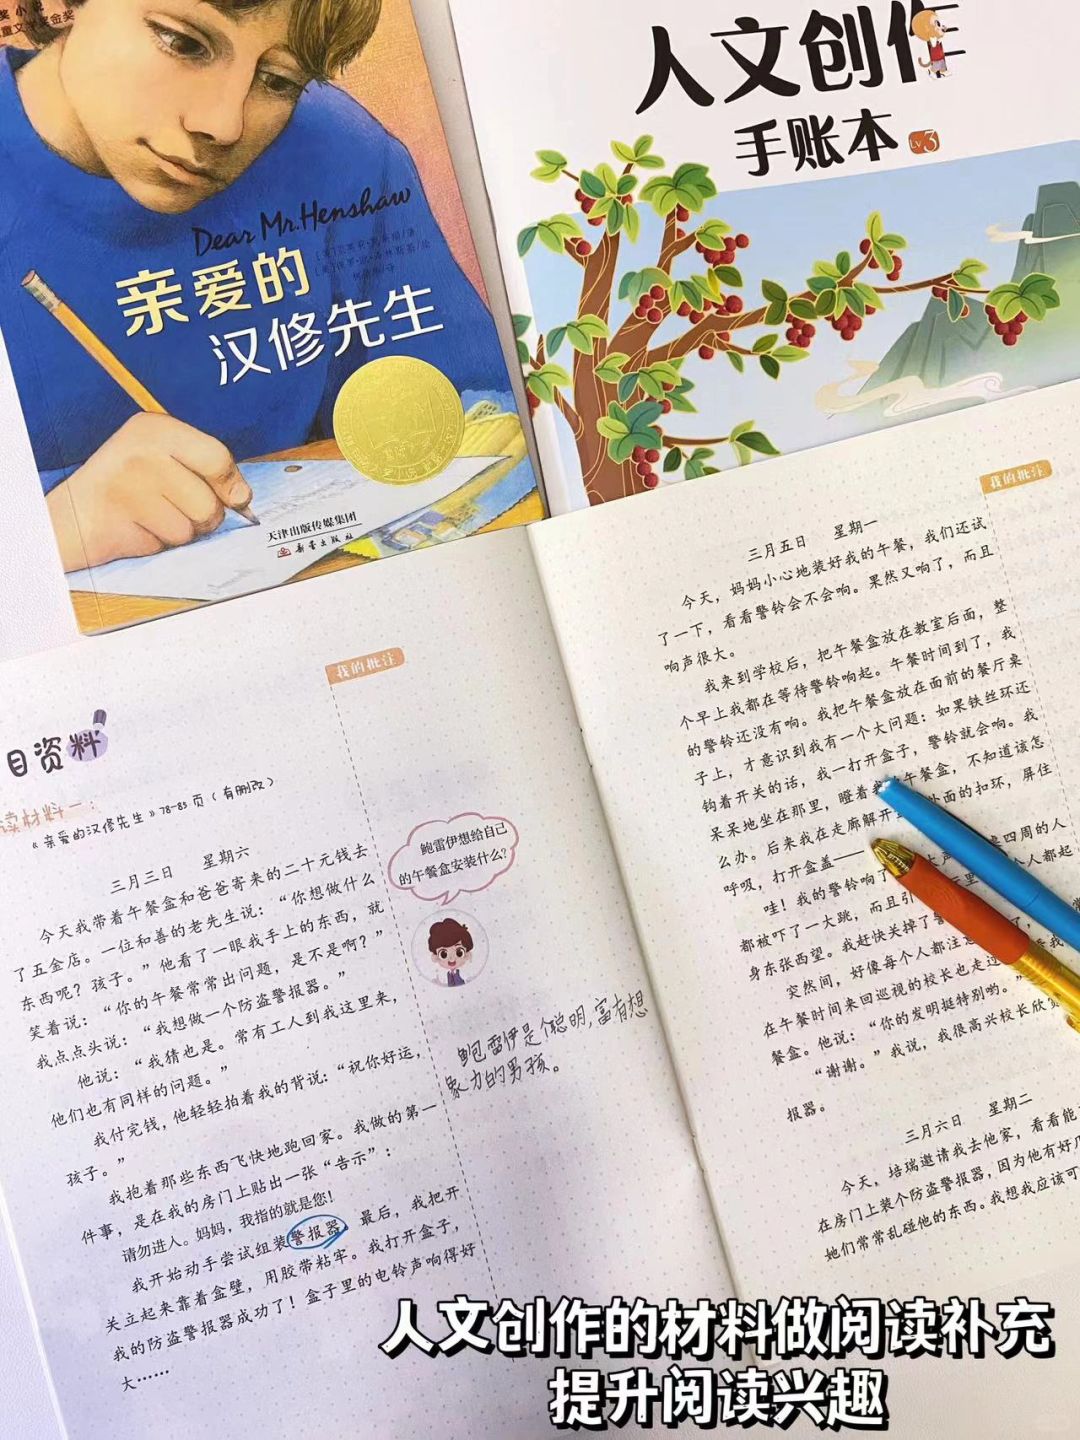 奖小说
儿童文学奖金奖
Dear Mr. Henshaw
亲爱的
汉修先生
天津出版传媒集团
新蕾出版社
人文创作
手账本 Lv 3
我的批注
目资料
读材料一：
《亲爱的汉修先生》78-83页（有删改）
三月三日 星期六
今天我带着午餐盒和爸爸寄来的二十元钱去
了五金店。一位和善的老先生说：“你想做什么
东西呢？孩子。”他看了一眼我手上的东西，就
笑着说：“你的午餐常常出问题，是不是啊？”
我点点头说：“我想做一个防盗警报器。”
他说：“我猜也是。常有工人到我这里来，
他们也有同样的问题。”
我付完钱，他轻轻拍着我的背说：“祝你好运，
孩子。”
我抱着那些东西飞快地跑回家。我做的第一
件事，是在我的房门上贴出一张“告示”：
请勿进入。妈妈，我指的就是您！
我开始动手尝试组装警报器。最后，我把开
关立起来靠着盒壁，用胶带粘牢。我打开盒子，
我的防盗警报器成功了！盒子里的电铃声响得好
大……
鲍雷伊想给自己
的午餐盒安装什么？
鲍雷伊是个聪明，富有想
象力的男孩。
我的批注
三月五日 星期一
今天，妈妈小心地装好我的午餐，我们还试
了一下，看看警铃会不会响。果然又响了，而且
响声很大。
我来到学校后，把午餐盒放在教室后面，整
个早上我都在等待警铃响起。午餐时间到了，我
的警铃还没有响。我把午餐盒放在面前的餐厅桌
子上，才意识到我有一个大问题：如果铁丝环还
钩着开关的话，我一打开盒子，警铃就会响。我
呆呆地坐在那里，瞪着我 午餐盒，不知道该怎
么办。后来我在走廊解开 外面的扣环，屏住
呼吸，打开盒盖——
哇！我的警铃响了 大声 桌四周的人
都被吓了一大跳，而且引 里 个人都起
身东张西望。我赶快关掉了警 了，
突然间，好像每个人都注
在午餐时间来回巡视的校长也走过
餐盒。他说：“你的发明挺特别哟。”
“谢谢。”我说，我很高兴校长欣赏
报器。
三月六日 星期二
今天，培瑞邀请我去他家，看看能
在房门上装个防盗警报器，因为他有好几
她们常常乱碰他的东西。我想我应该可
人文创作的材料做阅读补充
提升阅读兴趣